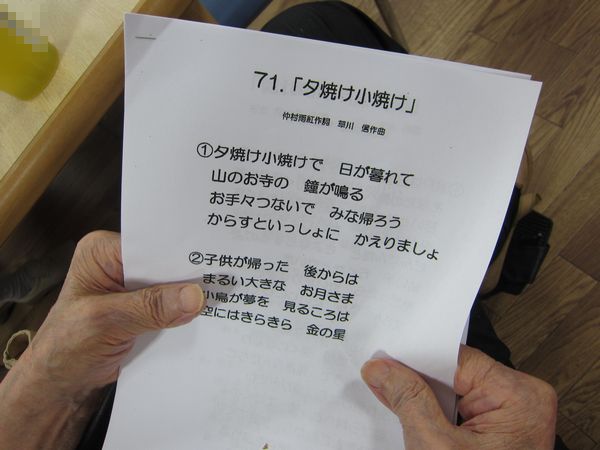 71.「夕焼け小焼け」
仲村雨紅作詞 草川 信作曲
①夕焼け小焼けで 日が暮れて
山のお寺の 鐘が鳴る
お手々つないで みな帰ろう
からすといっしょに かえりましょ
②子供が帰った 後からは
まるい大きな お月さま
小鳥が夢を 見るころは
空にはきらきら 金の星